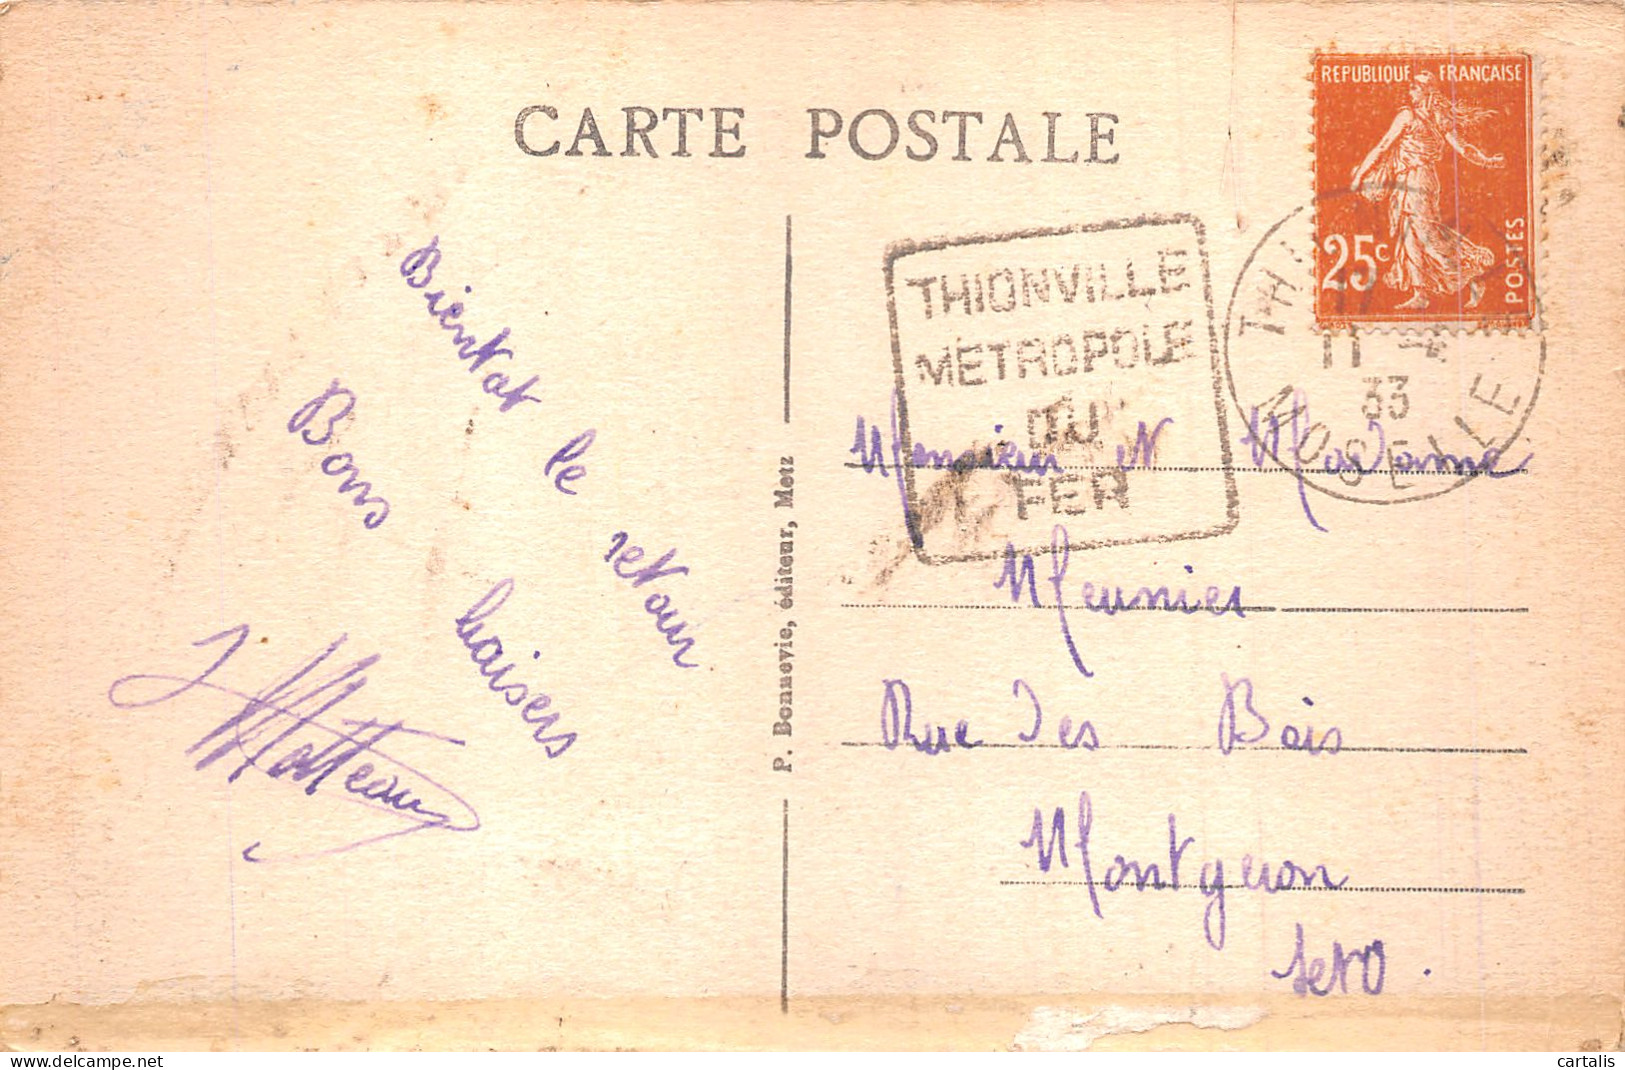 CARTE POSTALE
REPUBLIQUE FRANÇAISE
25c
POSTES
THIONVILLE
METROPOLE
DU
FER
33
MOSELLE
Bientot le retour
Bons baisers
Matteau
P. Bonnevie, éditeur, Metz
Monsieur et Madame
Meunier
Rue des Bois
Montgeron
S et O.
cartalis